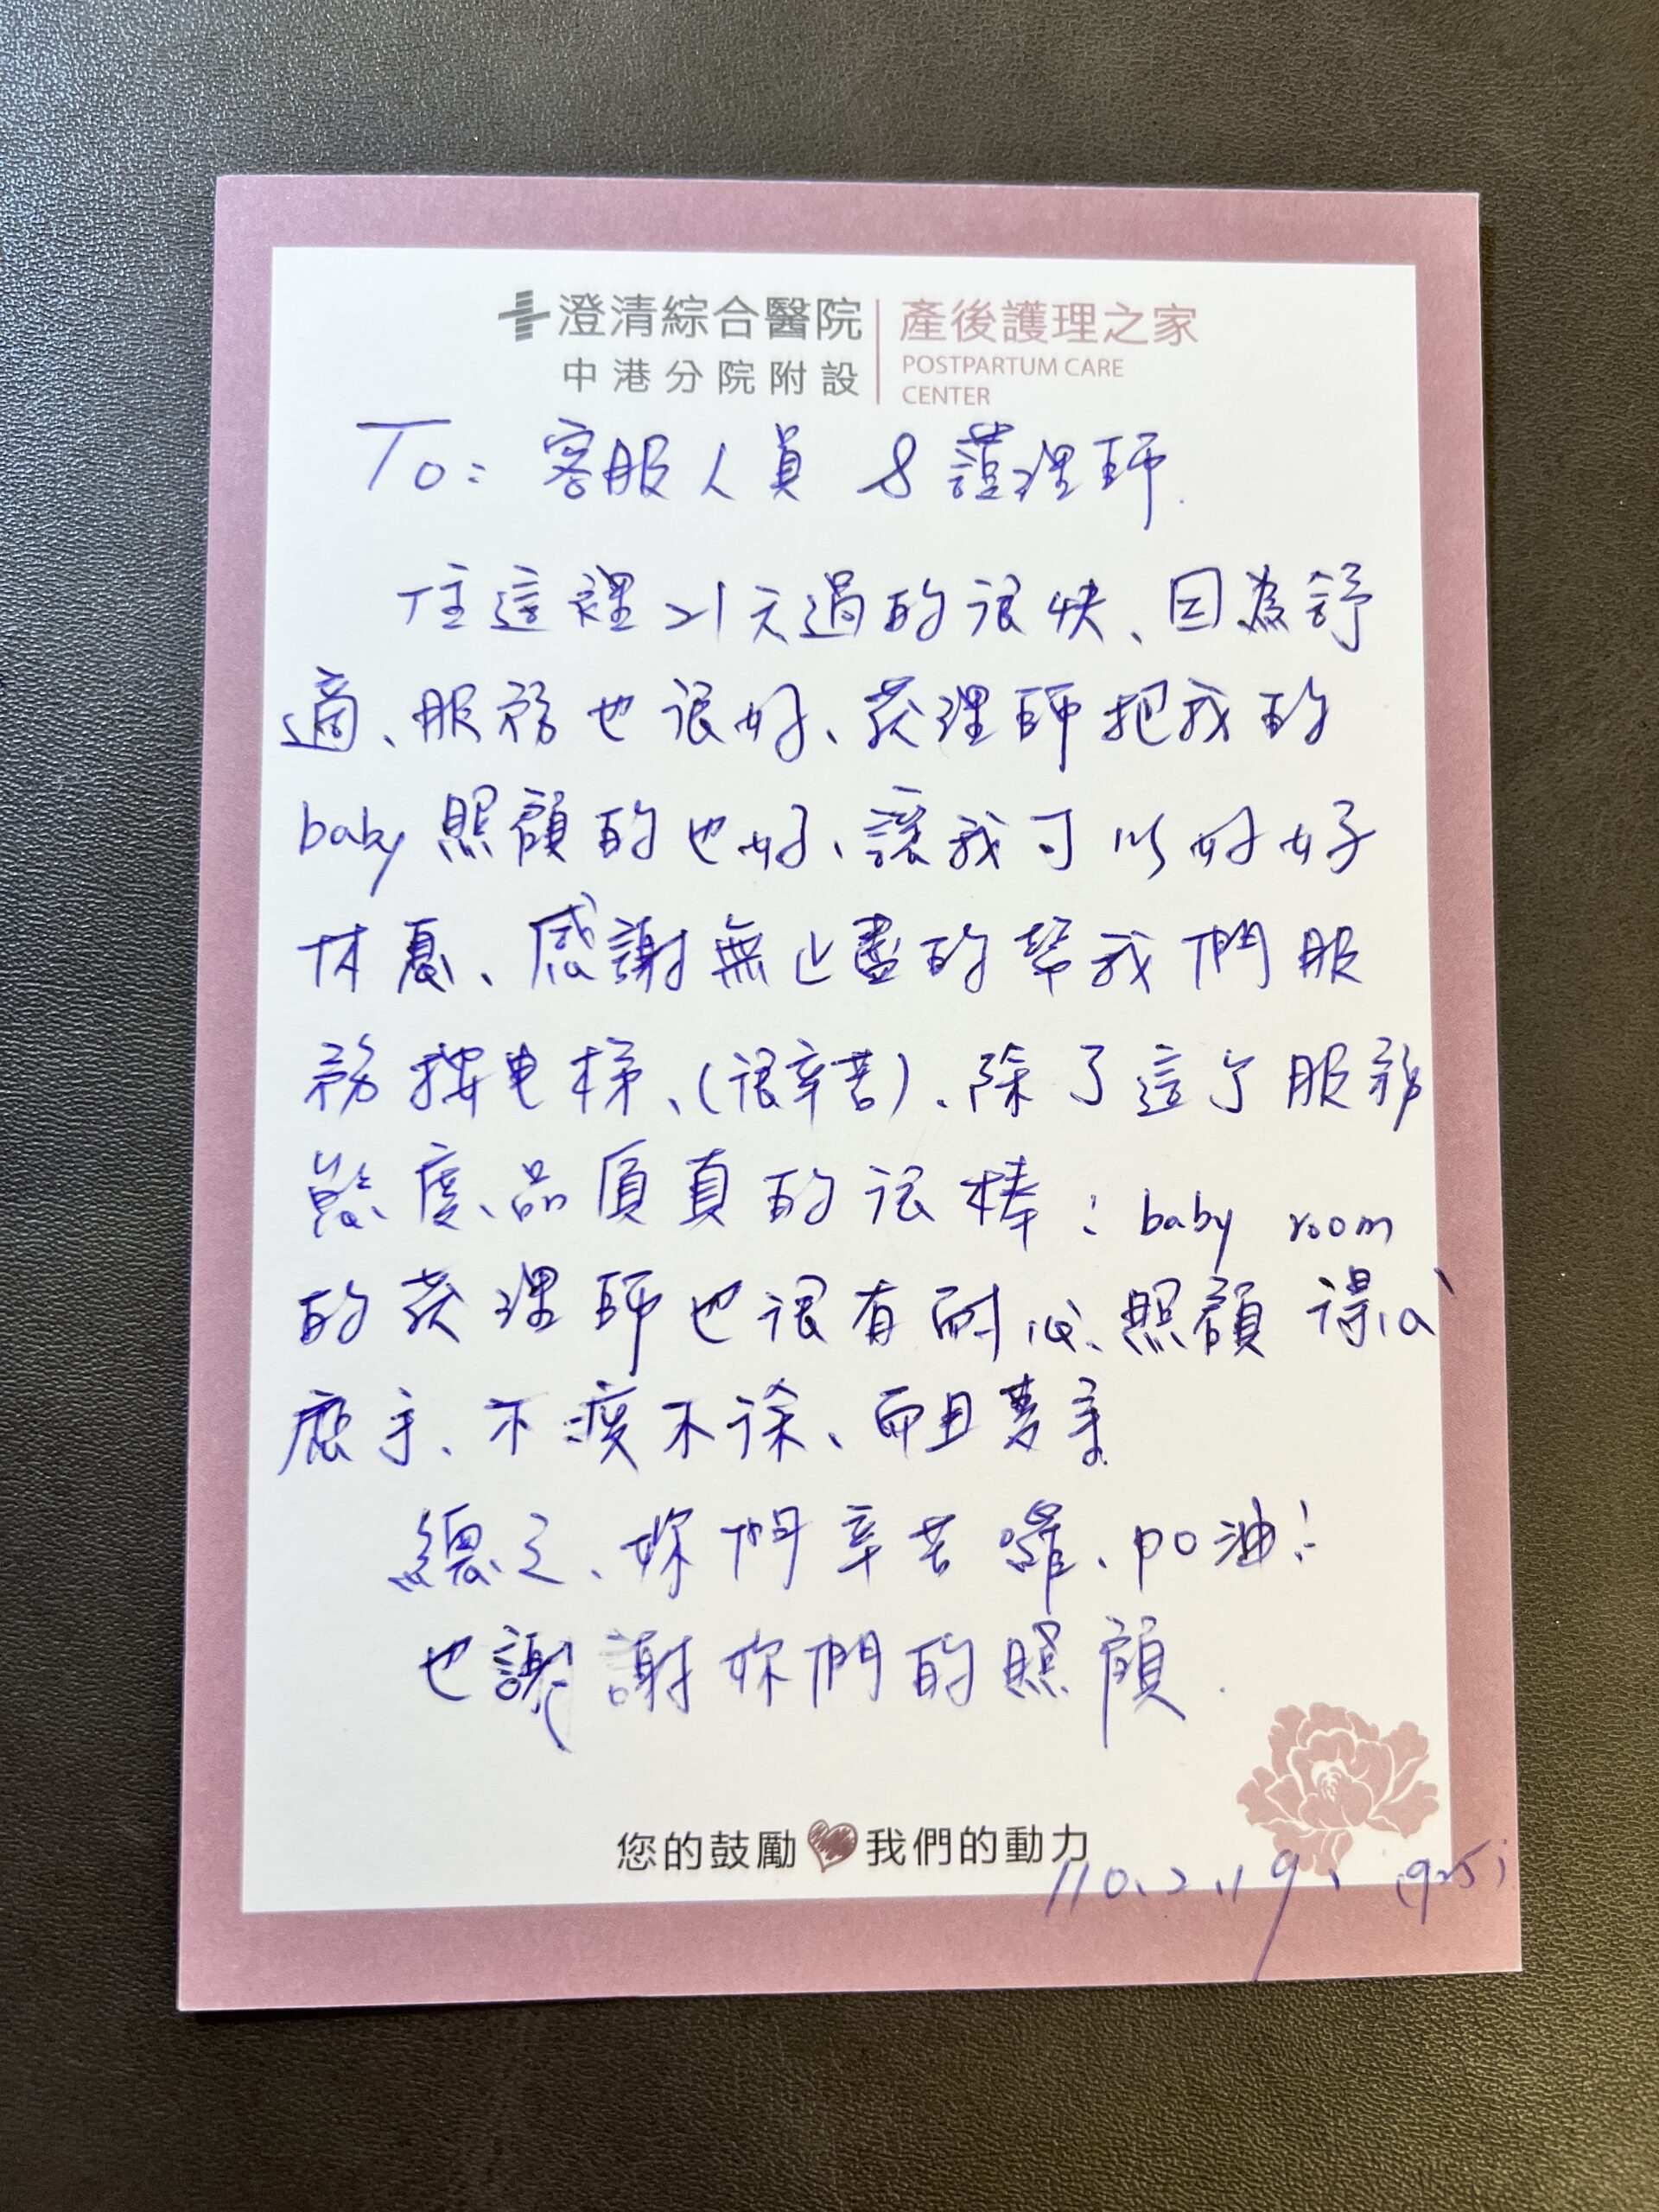 澄清綜合醫院
中港分院附設
產後護理之家
POSTPARTUM CARE
CENTER
To: 客服人員 & 護理師.
住這裡21天過的很快、因為舒
適、服務也很好、护理師把我的
baby照顧的也好、讓我可以好好
休息、感謝無止盡的幫我們服
務按电梯、(很辛苦)、除了這个服務
態度、品質真的很棒:baby room
的护理師也很有耐心、照顧得心
應手、不疾不徐、而且
總之、妳們辛苦囉、加油!
也謝謝妳們的照顧.
您的鼓勵 我們的動力
110.2.19、(925)